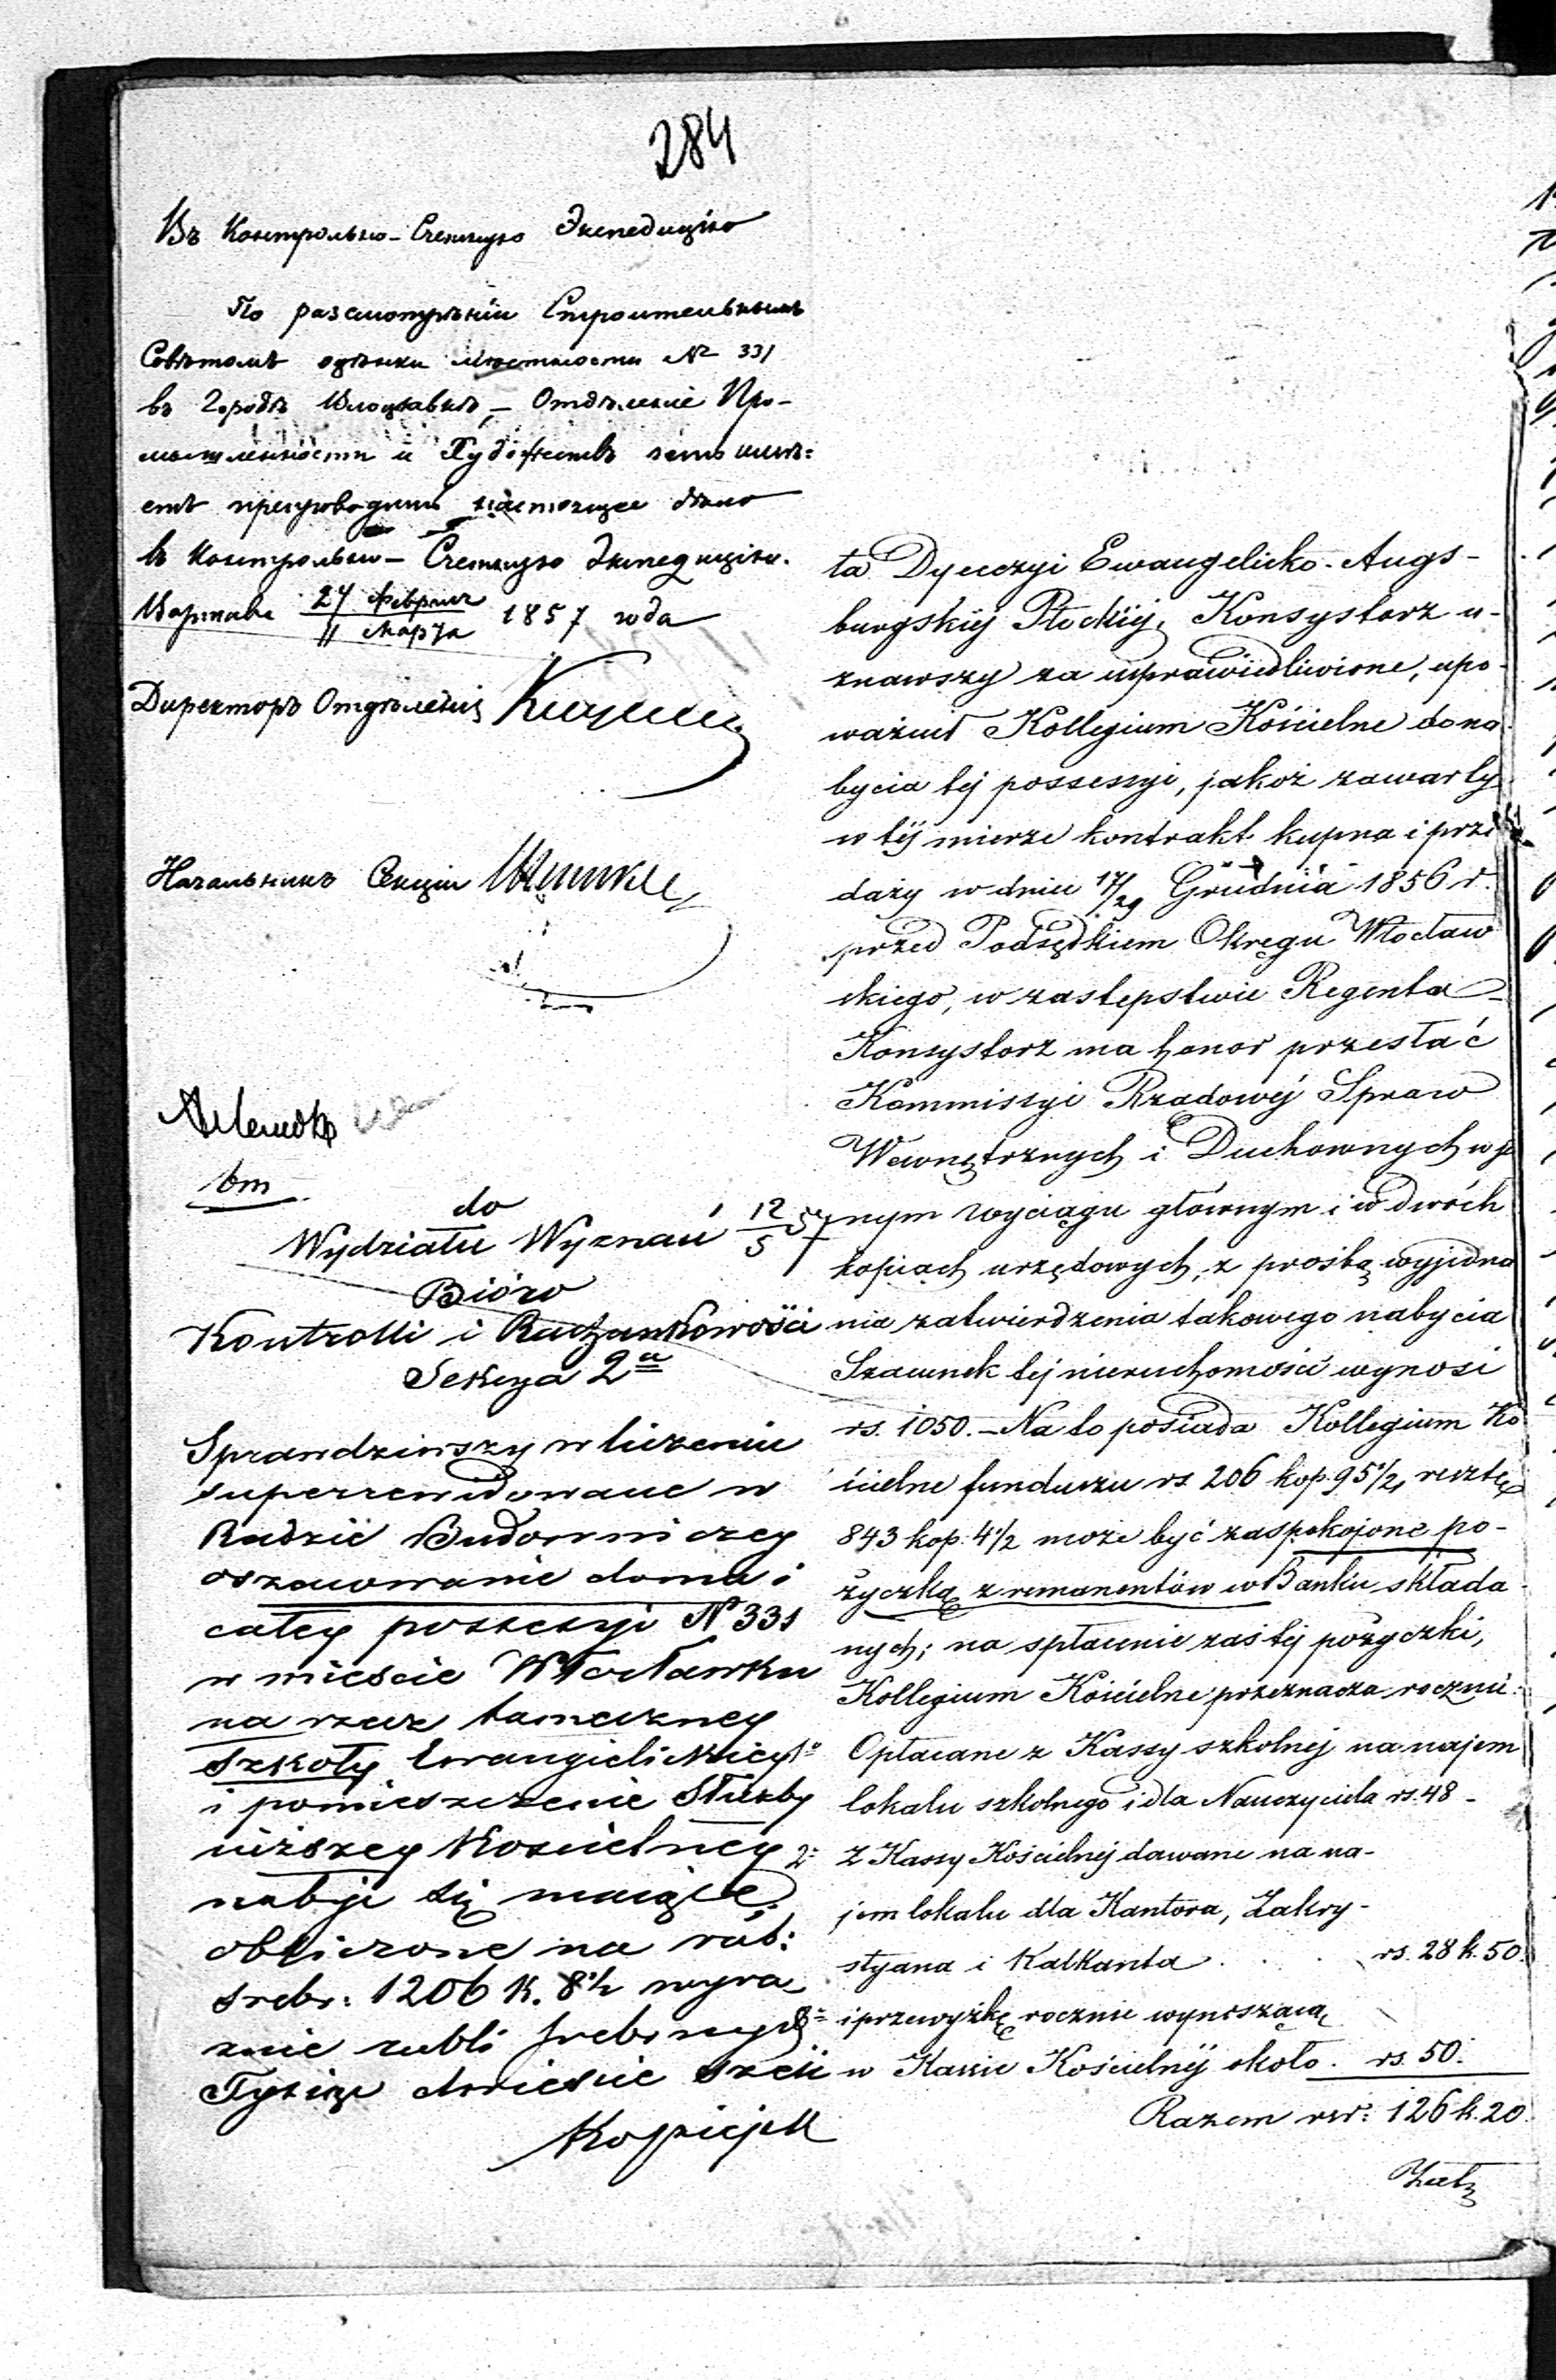 284
Въ Контрольно-Счетную Экспедицію
По разсмотрѣніи Строительнымъ
Совѣтомъ оцѣнки мѣстности № 331
въ Городѣ Влоцлавкѣ, – Отдѣленіе Про-
мышленности и Художествъ честь имѣ=
етъ препроводить настоящее дѣло
въ Контрольно-Счетную Экспедицію.
Варшава 27 Февраля / 11 Марта 1857 года
Директоръ Отдѣленія
Начальникъ Секціи
do
Wydziału Wyznań 12/5 57
Bióro
Kontrolli i Rachunkowości
Sekcya 2a
Sprawdziwszy w liczeniu
superrewidowane w
Radzie Budowniczey
oszacowanie domu i
całey possessyi No 331
w mieście Włocławku
na rzecz tameczney
szkoły Ewangielickiey
i pomieszczenie Służby
niższey Kościelney
nabyć się maiące
obliczone na rub:
srebr: 1206 k. 8½ wyra-
źnie rubli srebrnych
Tysiąc dwieście sześć
Kopiejek
ta Dyecezyi Ewangelicko-Augs-
burgskiéj Płockiéj, Konsystorz u-
znawszy za usprawiedliwione, upo-
ważnił Kollegium Kościelne do na-
bycia tej possessyi, jakoż zawarty
w téj mierze kontrakt kupna i prze
daży w dniu 17/29 Grudnia 1856 r.
przed Podsędkiem Okręgu Włocław
skiego, w zastępstwie Regenta
Konsystorz ma honor przesłać
Kommissyi Rządowéj Spraw
Wewnętrznych i Duchownych w je
nym wyciągu głównym i w dwóch
kopiach urzędowych, z prośbą wyjedna
nia zatwierdzenia takowego nabycia
Szacunek tej nieruchomości wynosi
rs. 1050. – Na to posiada Kollegium Ko
ścielne funduszu rs. 206 kop. 95½, resztę
843 kop. 4½ może być zaspokojone po-
życzką z remanentów w Banku składa-
nych; na spłacenie zaś téj pożyczki,
Kollegium Kościelne przeznacza rocznie:
1o Opłacane z Kassy szkolnéj na najem
lokalu szkolnego i dla Nauczyciela rs. 48 –
2o Z Kassy Kościelnéj dawane na na-
jem lokalu dla Kantora, Zakry-
styana i Kalkanta . . . rs. 28 k. 50.
3o i przewyżkę rocznie wynoszącą
w Kassie Kościelnéj około . rs. 50.
Razem rsr: 126 k. 20.